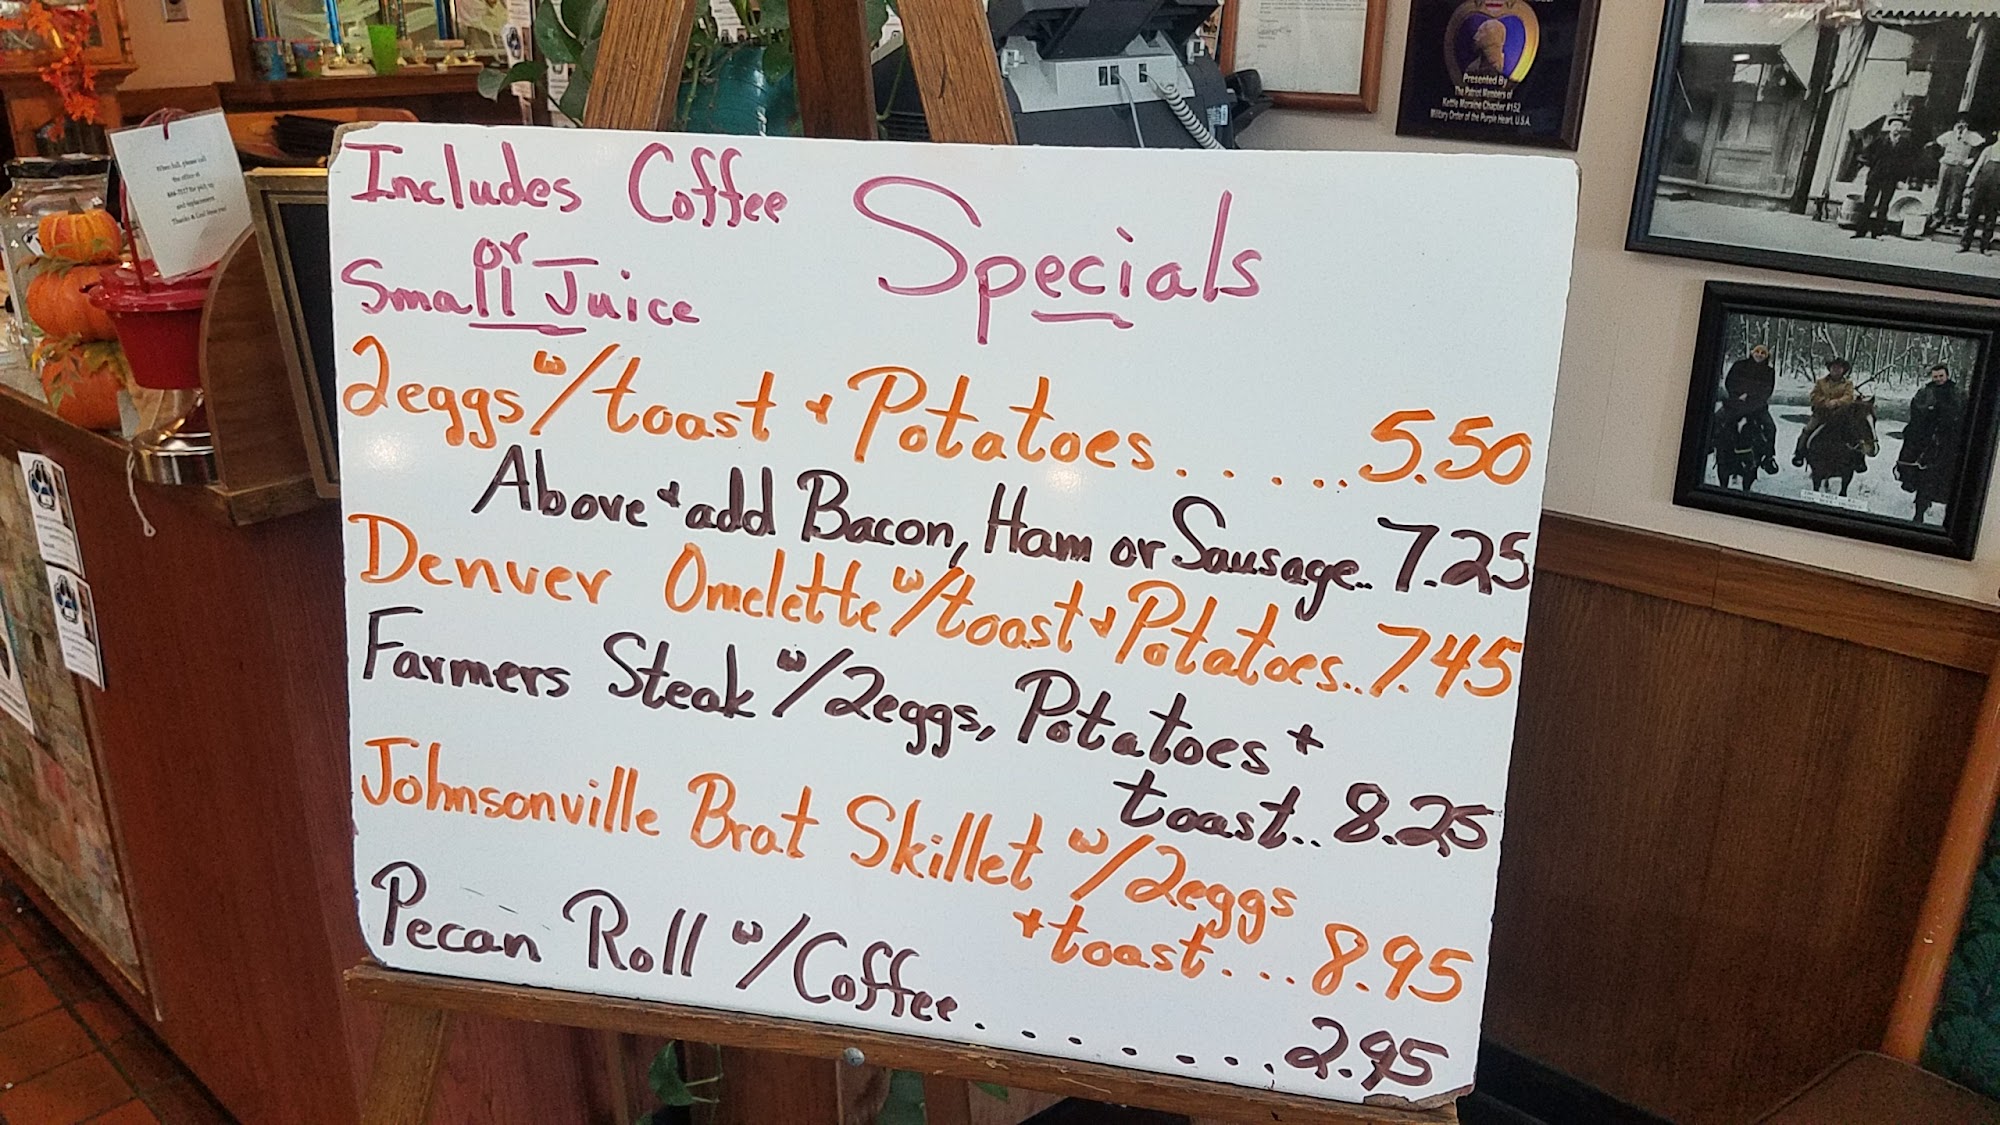 Includes Coffee
or
Small Juice
Specials
2eggs w/toast + Potatoes......5.50
Above + add Bacon, Ham or Sausage..7.25
Denver Omelette w/toast + Potatoes..7.45
Farmers Steak w/2eggs, Potatoes +
toast..8.25
Johnsonville Brat Skillet w/2eggs
+ toast...8.95
Pecan Roll w/Coffee......2.95
Presented By
The Patriot Members of
Kettle Moraine Chapter #152
Military Order of the Purple Heart, U.S.A.
When full, please call
the office at
for pick up
and replacement.